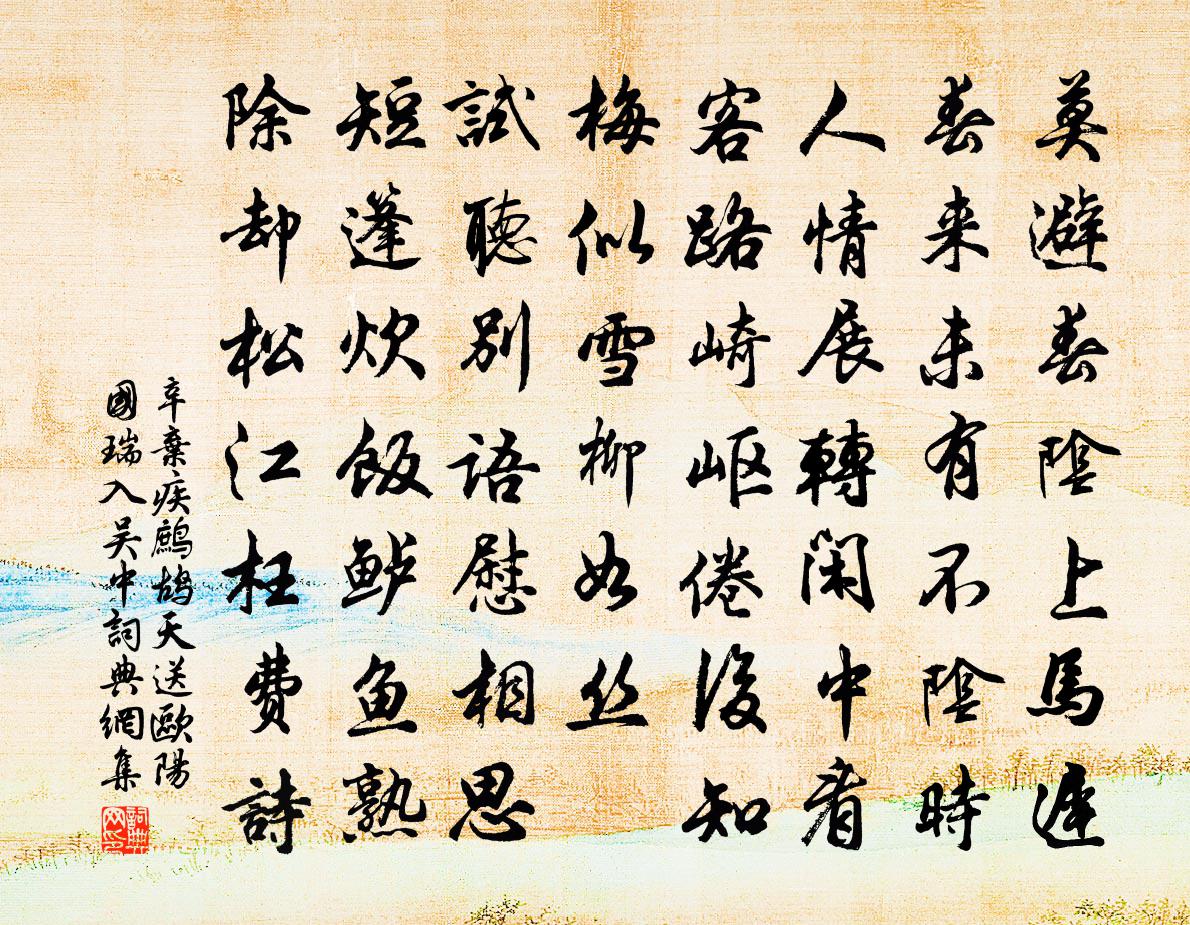 莫避春陰上馬遲
春来未有不陰時
人情展轉閑中看
客路崎岖倦後知
梅似雪柳如丝
試聽别語慰相思
短篷炊飯鲈鱼熟
除却松江枉費詩
辛棄疾鷓鴣天送歐陽
國瑞入吴中詞典網集
詞典